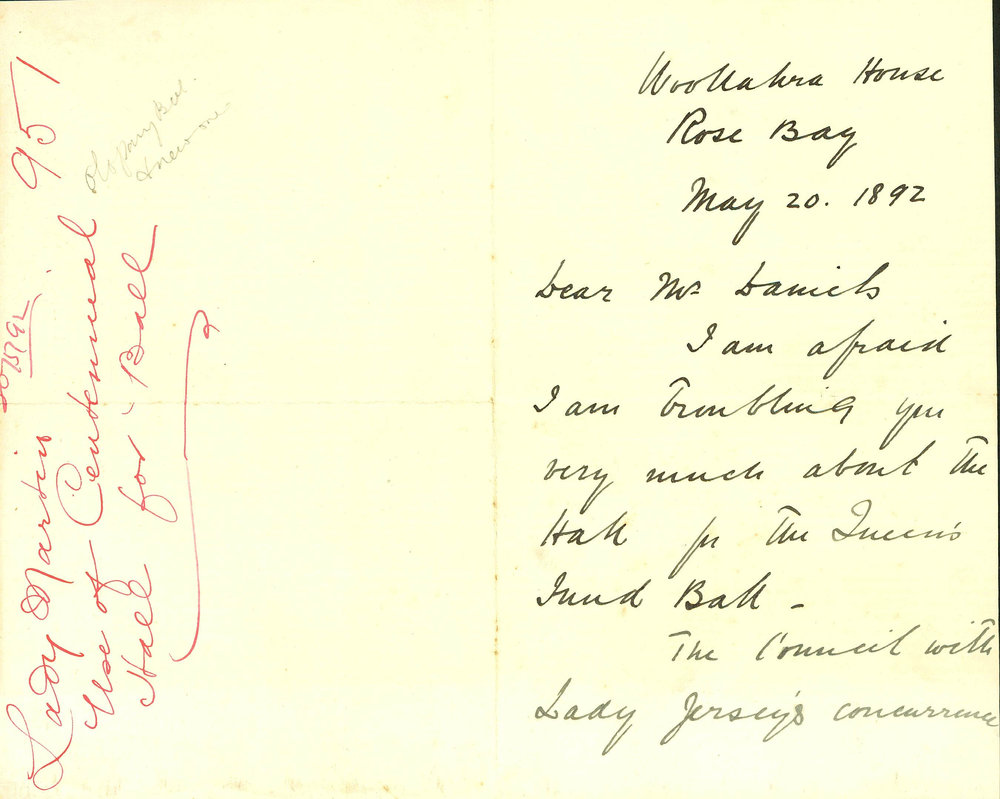 951
20/5/92
Lady Martin
Use of Centennial
Hall for Ball
& new one
Woollahra House
Rose Bay
May 20. 1892
Dear Mr Daniels
I am afraid
I am troubling you
very much about the
Hall for the Queen's
Fund Ball -
The Council with
Lady Jersey's concurrence